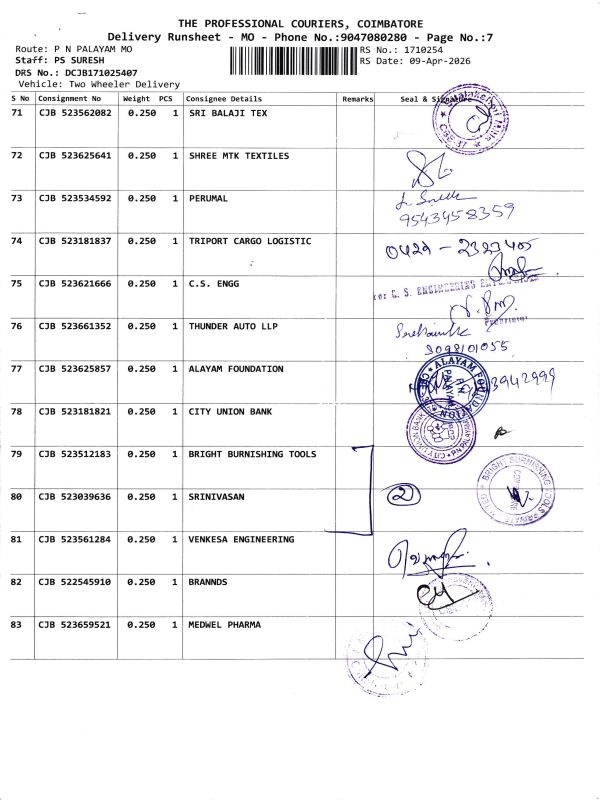 THE PROFESSIONAL COURIERS, COIMBATORE
Delivery Runsheet - MO - Phone No.:9047080280 - Page No.:7
Route: P N PALAYAM MO
RS No.: 1710254
Staff: PS SURESH
RS Date: 09-Apr-2026
DRS No.: DCJB171025407
Vehicle: Two Wheeler Delivery
S No Consignment No Weight PCS Consignee Details Remarks Seal & Signature
71 CJB 523562082 0.250 1 SRI BALAJI TEX
CBE-37
72 CJB 523625641 0.250 1 SHREE MTK TEXTILES
73 CJB 523534592 0.250 1 PERUMAL
9543458359
74 CJB 523181837 0.250 1 TRIPORT CARGO LOGISTIC
0422 - 2323405
75 CJB 523621666 0.250 1 C.S. ENGG
For C. S. ENGINEERING
Proprietor
76 CJB 523661352 0.250 1 THUNDER AUTO LLP
9098101055
77 CJB 523625857 0.250 1 ALAYAM FOUNDATION
ALAYAM FOUNDATION
3942999
78 CJB 523181821 0.250 1 CITY UNION BANK
CITY UNION BANK
79 CJB 523512183 0.250 1 BRIGHT BURNISHING TOOLS
BRIGHT BURNISHING TOOLS PRIVATE LIMITED
80 CJB 523039636 0.250 1 SRINIVASAN
2
81 CJB 523561284 0.250 1 VENKESA ENGINEERING
82 CJB 522545910 0.250 1 BRANNDS
83 CJB 523659521 0.250 1 MEDWEL PHARMA